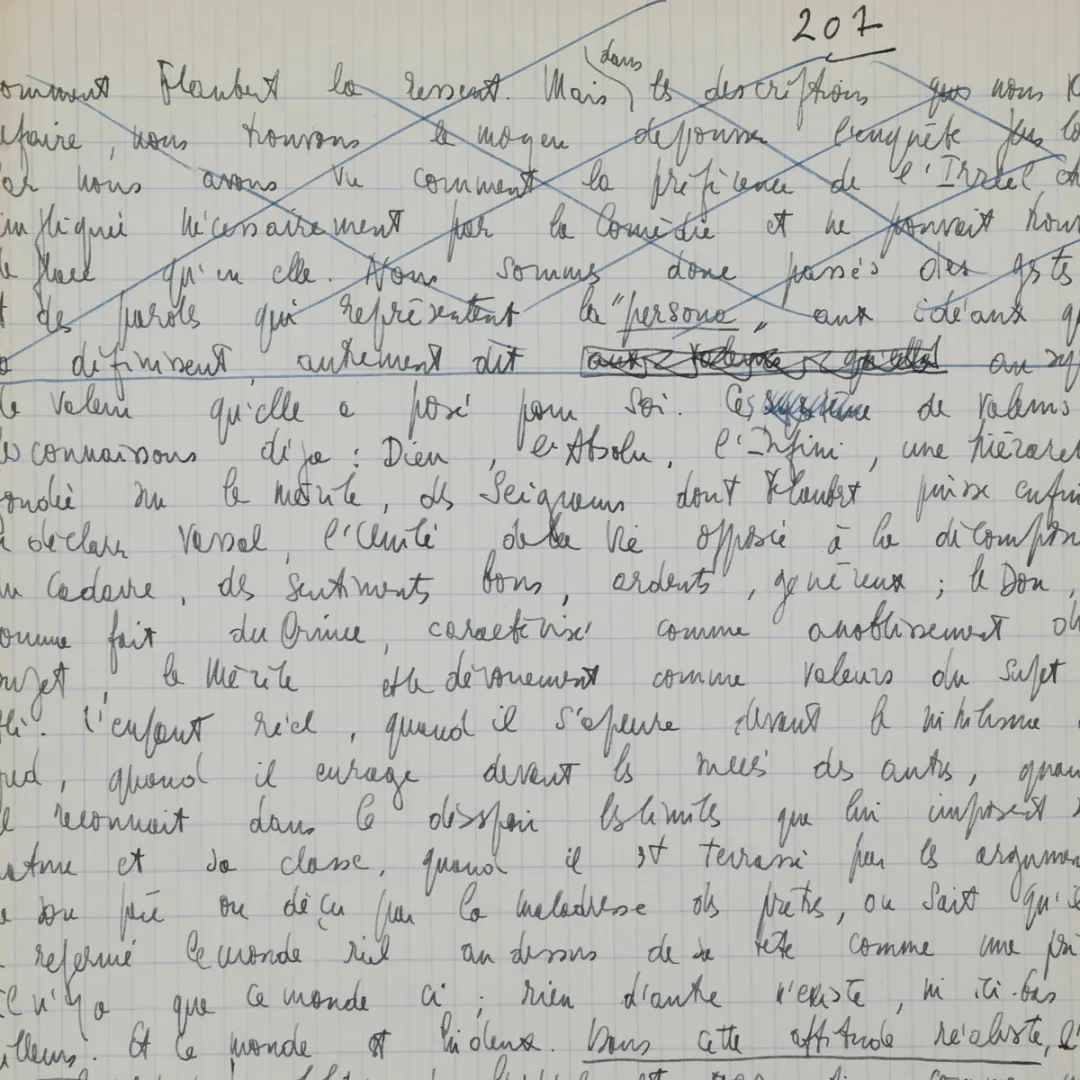 207
omment Flaubert la ressent. Mais dans les descriptions que nous
efaire, nous trouvons le moyen de pousser l'enquête plus lo
ar nous avons vu comment la préférence de l'Irréel, ét
impliquée nécessairement par la Comédie et ne pouvait trouv
e place qu'en elle. Nous sommes donc passés des gestes
t des paroles qui représentent la "persona", aux idéaux q
a définissent, autrement dit au sy
e valeur qu'elle a posé pour soi. Ces système de valeurs
es connaissons déjà : Dieu, l'Absolu, l'Infini, une hiérarch
ondée sur le mérite, des Seigneurs dont Flaubert puisse enfin
e déclarer vassal, l'Unité de la Vie opposée à la décompos
u Cadavre, des sentiments bons, ardents, généreux ; le Don,
omme fait du Prince, caractérisé comme anoblissement
ujet, le Mérite et le dévouement comme valeurs du sujet
bli. L'enfant réel, quand il s'apeure devant le nihilisme
red, quand il enrage devant les des autres, quan
l reconnait dans le désespoir les limites que lui imposent s
et sa classe, quand il est terrassé par les argumen
e son père ou déçu par la maladresse des prêtres, ou sait qu'i
refermé le monde réel au dessus de sa tête comme une pri
il n'y a que ce monde ci ; rien d'autre n'existe, ni ici-bas
illeurs. Et ce monde est hideux. Dans cette attitude réaliste, l'